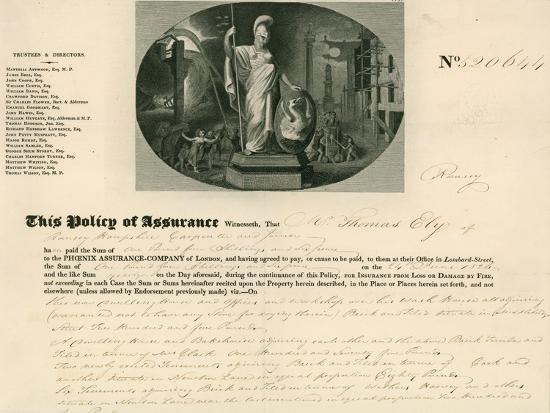 TRUSTEES & DIRECTORS.
MATTHIAS ATTWOOD, Esq. M. P.
JOHN COOPE, Esq.
WILLIAM CURTIS, Esq.
WILLIAM DAVIS, Esq.
CRAWFORD DAVISON, Esq.
Sir CHARLES FLOWER, Bart. & Alderman
EMANUEL GOODHART, Esq.
JOHN HAWES, Esq.
WILLIAM HEYGATE, Esq. Alderman & M.P.
THOMAS HODGSON, Esq.
RICHARD HENSHAW LAWRENCE, Esq.
JOHN PETTY MUSPRATT, Esq.
MAJOR RHODE, Esq.
WILLIAM SADLER, Esq.
GEORGE SHUM STOREY, Esq.
CHARLES HAMPDEN TURNER, Esq.
MATTHEW WHITING, Esq.
MATTHEW WILSON, Esq.
THOMAS WILSON, Esq. M. P.
No. 520644
Romsey
This Policy of Assurance Witnesseth, That Mr. Thomas Ely of
Romsey Hampshire Carpenter and Joiner
having paid the Sum of One Pound four Shillings and Six pence
to the PHŒNIX ASSURANCE-COMPANY of LONDON, and having agreed to pay, or cause to be paid, to them at their Office in Lombard-Street,
the Sum of One Pound four Shillings and Six pence on the 24th June 1824
and the like Sum yearly on the Day aforesaid, during the continuance of this Policy, for INSURANCE FROM LOSS OR DAMAGE BY FIRE,
not exceeding in each Case the Sum or Sums hereinafter recited upon the Property herein described, in the Place or Places herein set forth, and not
elsewhere (unless allowed by Endorsement previously made) viz.—On
his now dwelling House and Offices and workshop over his Wash House all adjoining
(warranted not to have any Stove for drying therein) Brick and Tiled situate in
Street Two Hundred and five Pounds
A Dwelling House and Bakehouse adjoining each other and the above Brick Timber and
Tiled in tenure of Clark One Hundred and Seventy five Pounds
Two newly erected Tenements adjoining Brick and Tiled in tenure of Cook and
another situate in Newton Lane in equal proportion Eighty Pounds
Six Tenements adjoining Brick and Tiled in tenure of Withers Harvey and others
situate in Newton Lane near the last mentioned in equal proportion Two Hundred and